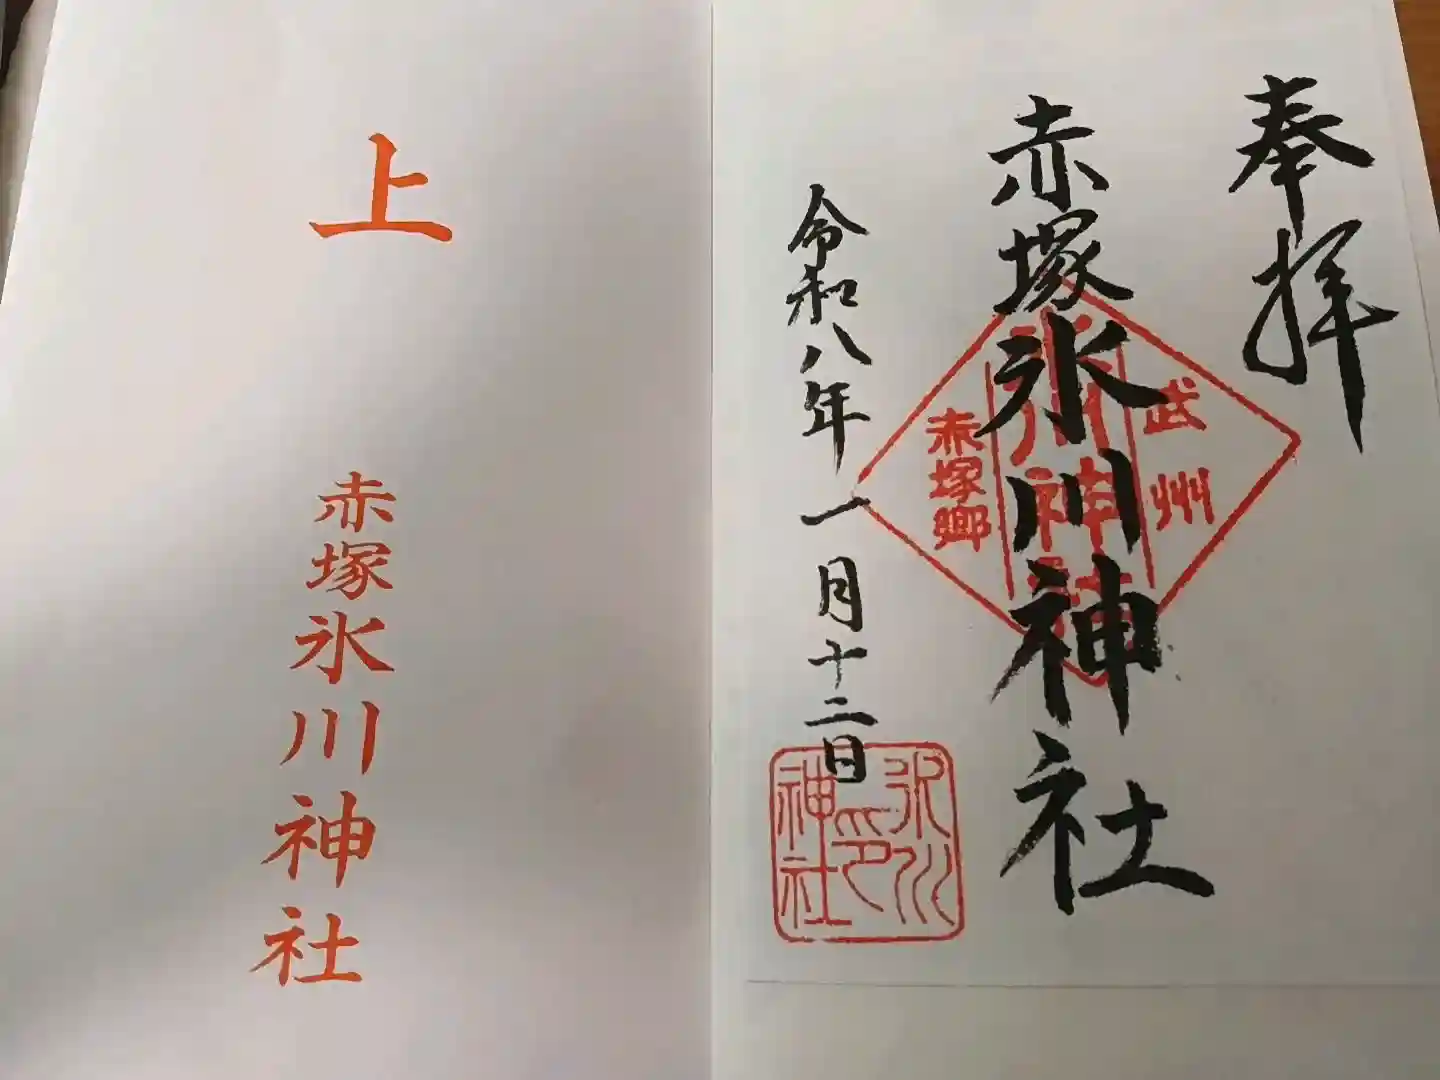 奉拝
赤塚氷川神社
令和八年一月十二日
武州
氷川神社
赤塚郷
氷川
神社
印
上
赤塚氷川神社